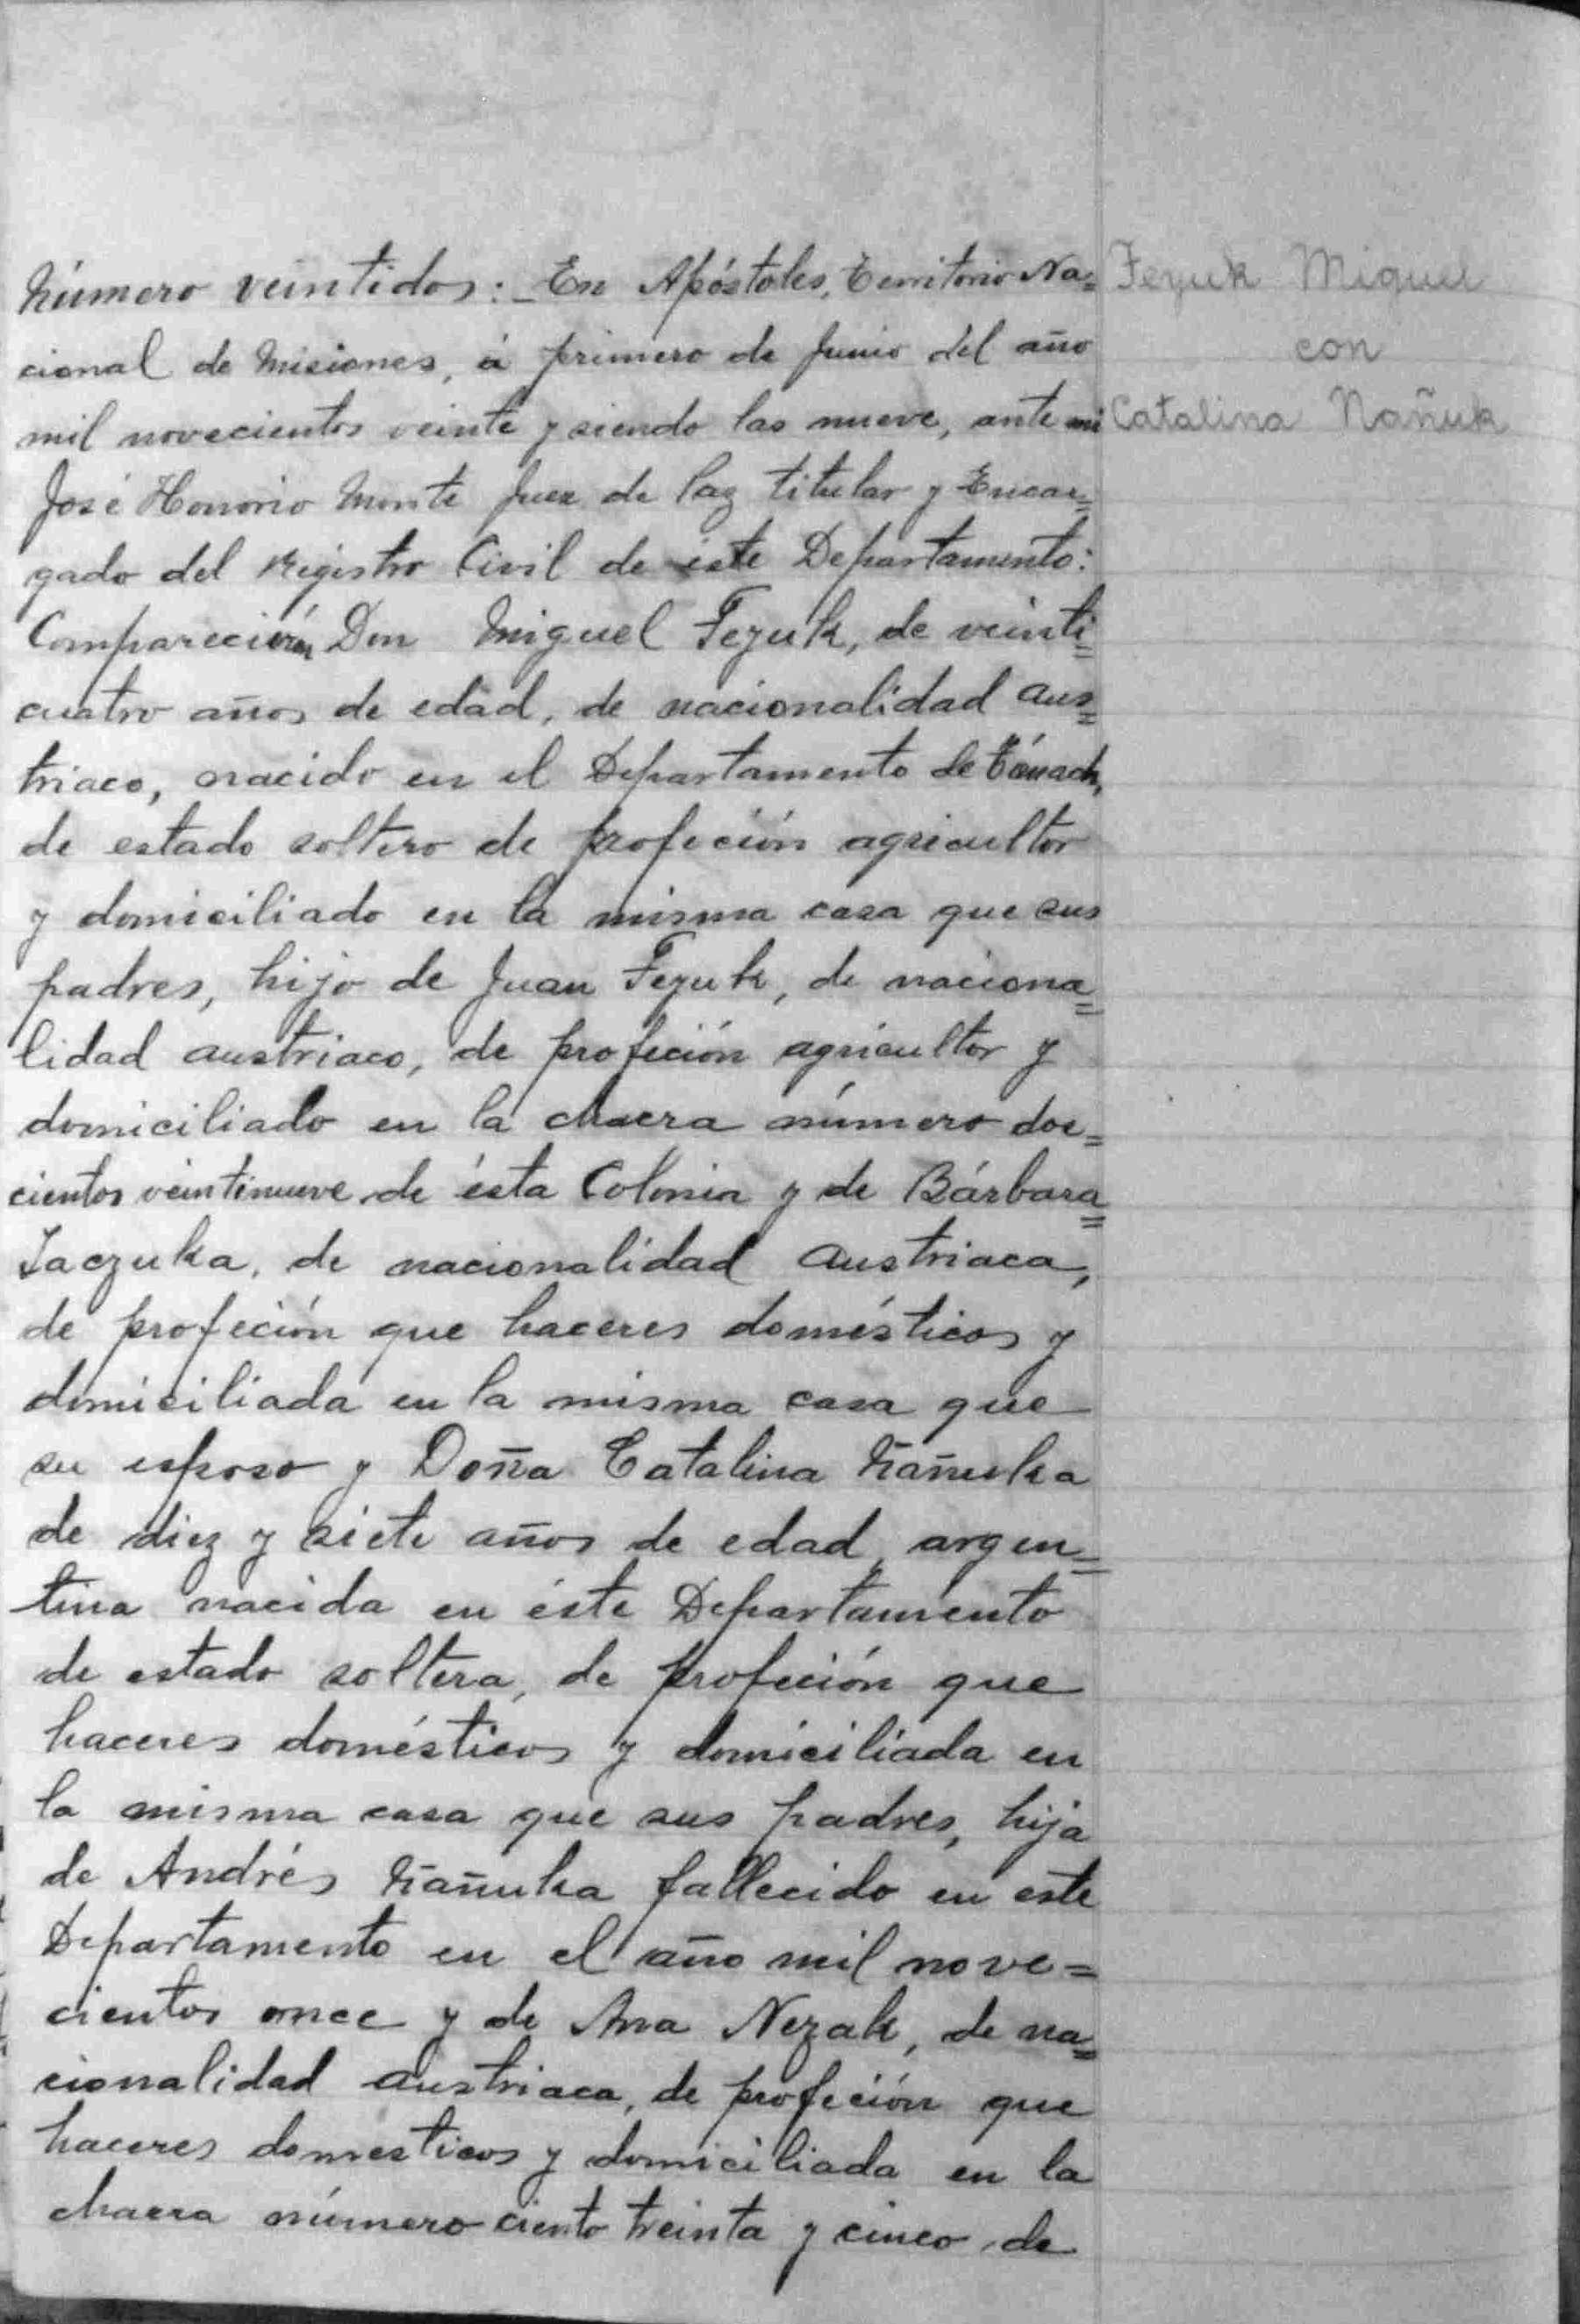 Feyuk Miguel
con
Catalina Nañuk
Número veintidos: En Apóstoles, Territorio Na=
cional de Misiones, á primero de Junio del año
mil novecientos veinte y siendo las nueve, ante mi
José Honorio Monte Juez de Paz titular y Encar=
gado del Registro Civil de éste Departamento:
Comparecieron Don Miguel Fezuk, de veinti=
cuatro años de edad, de nacionalidad aus=
triaco, nacido en el Departamento de
de estado soltero de profeción agricultor
y domiciliado en la misma casa que sus
padres, hijo de Juan Fezuk, de naciona=
lidad austriaco, de profeción agricultor y
domiciliado en la chacra número dos=
cientos veintinueve de ésta Colonia y de Bárbara=
Jaczuka, de nacionalidad austriaca,
de profeción que haceres domésticos y
domiciliada en la misma casa que
su esposo y Doña Catalina Ñañuka
de diez y siete años de edad, argen=
tina nacida en éste Departamento
de estado soltera, de profeción que
haceres domésticos y domiciliada en
la misma casa que sus padres, hija
de Andrés Ñañuka fallecido en este
Departamento en el año mil nove=
cientos once y de Ana Nezak, de na=
cionalidad austriaca, de profeción que
haceres domesticos y domiciliada en la
chacra número ciento treinta y cinco de